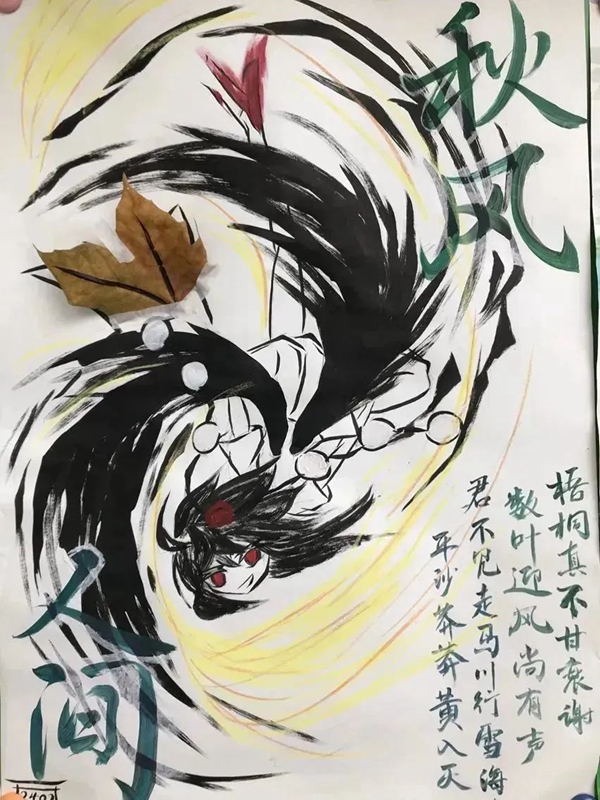 秋风
人间
梧桐真不甘衰谢
数叶迎风尚有声
君不见走马川行雪海
平沙莽莽黄入天